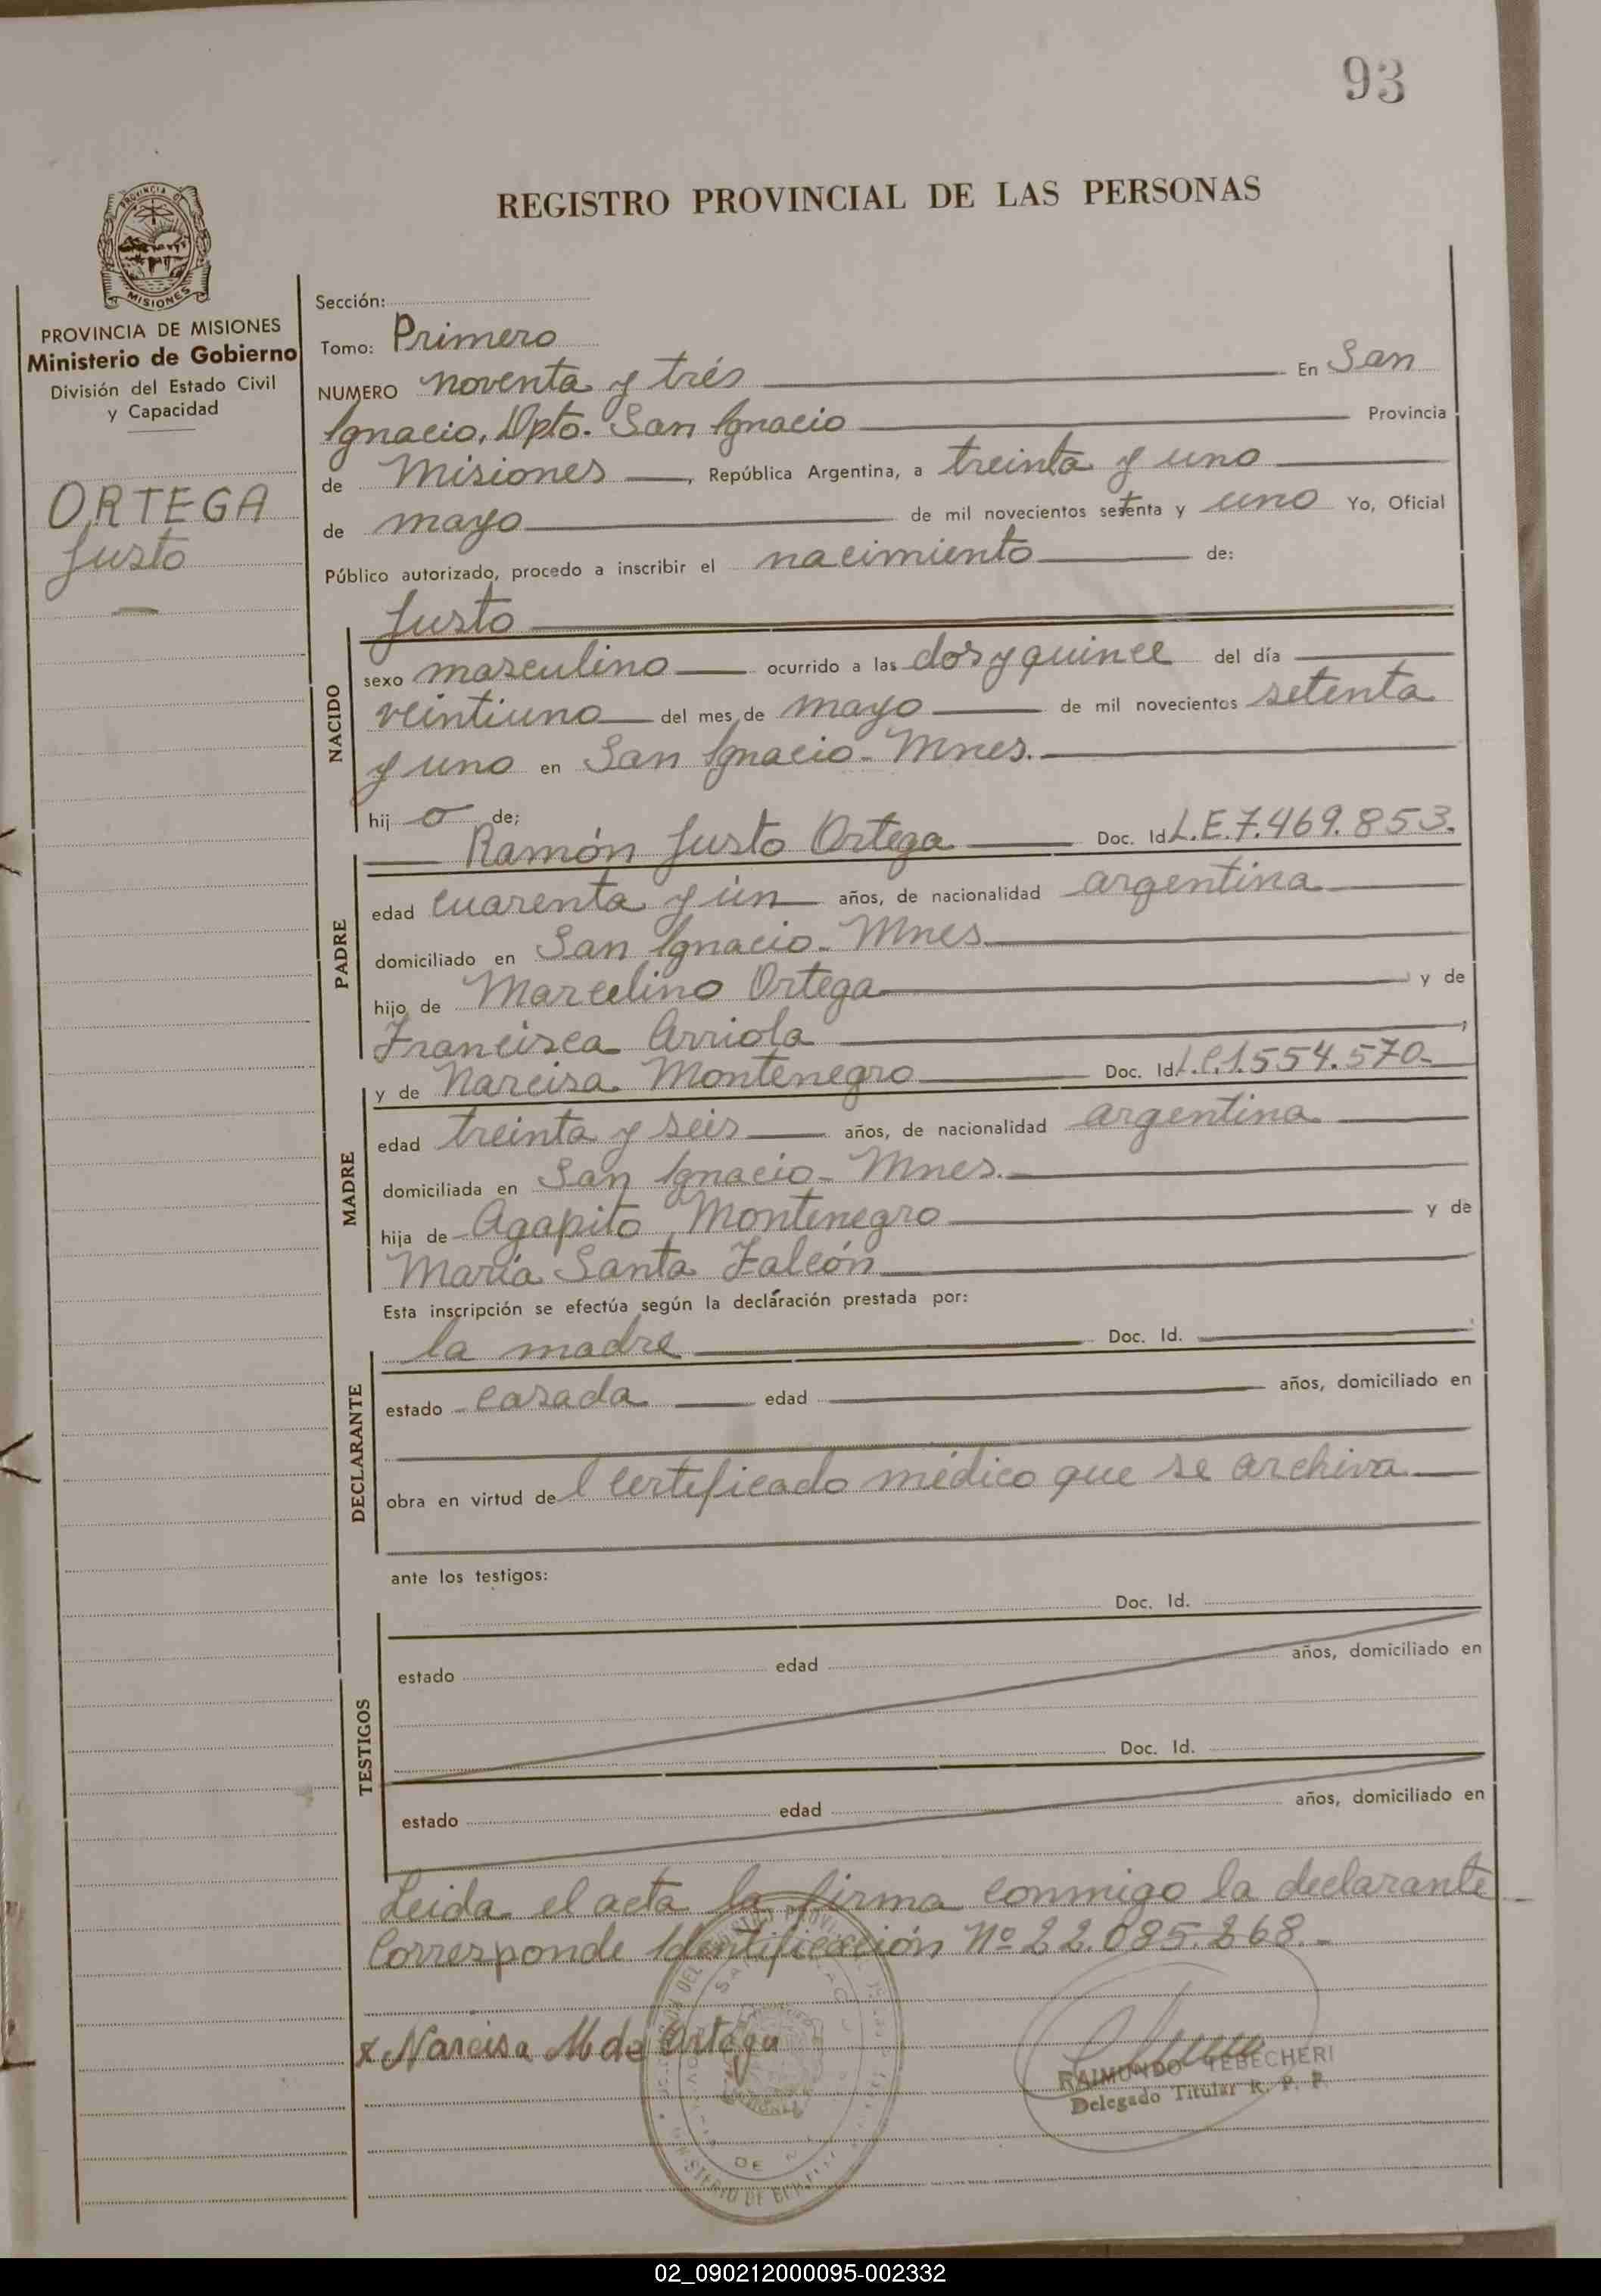 93
REGISTRO PROVINCIAL DE LAS PERSONAS
PROVINCIA DE
MISIONES
PROVINCIA DE MISIONES
Ministerio de Gobierno
División del Estado Civil
y Capacidad
ORTEGA
Justo
Sección:
Tomo: Primero
NUMERO noventa y trés En San
Ignacio, Dpto. San Ignacio Provincia
de Misiones, República Argentina, a treinta y uno
de mayo de mil novecientos setenta y uno Yo, Oficial
Público autorizado, procedo a inscribir el nacimiento de:
Justo
NACIDO
sexo masculino ocurrido a las dos y quince del día
veintiuno del mes de mayo de mil novecientos setenta
y uno en San Ignacio - Mnes.
hij o de;
Ramón Justo Ortega Doc. Id. L.E. 7.469.853.
PADRE
edad cuarenta y ún años, de nacionalidad argentina
domiciliado en San Ignacio - Mnes
hijo de Marcelino Ortega y de
Francisca Arriola,
y de Narcisa Montenegro Doc. Id. L.C. 1.554.570-
MADRE
edad treinta y seis años, de nacionalidad argentina
domiciliada en San Ignacio - Mnes.
hija de Agapito Montenegro y de
María Santa Falcón
Esta inscripción se efectúa según la declaración prestada por:
la madre Doc. Id.
DECLARANTE
estado casada edad años, domiciliado en
obra en virtud del certificado médico que se archiva
ante los testigos:
Doc. Id.
TESTIGOS
estado edad años, domiciliado en
Doc. Id.
estado edad años, domiciliado en
Leida el acta la firma conmigo la declarante
Corresponde Identificación Nº 22.085.268.-
x Narcisa M de Ortega
RAIMUNDO TEBECHERI
Delegado Titular R. P. P.
02_090212000095-002332